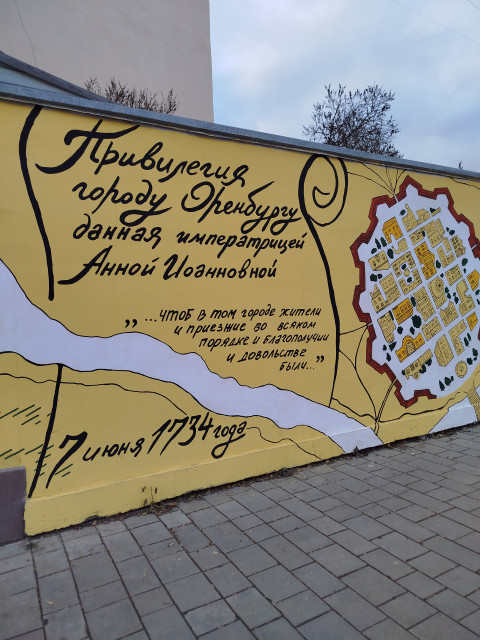 Привилегия
городу Оренбургу
данная императрицей
Анной Иоанновной
„ ...чтоб в том городе жители
и приезжие во всяком
порядке и благополучии
и довольстве
были... ”
7 июня 1734 года